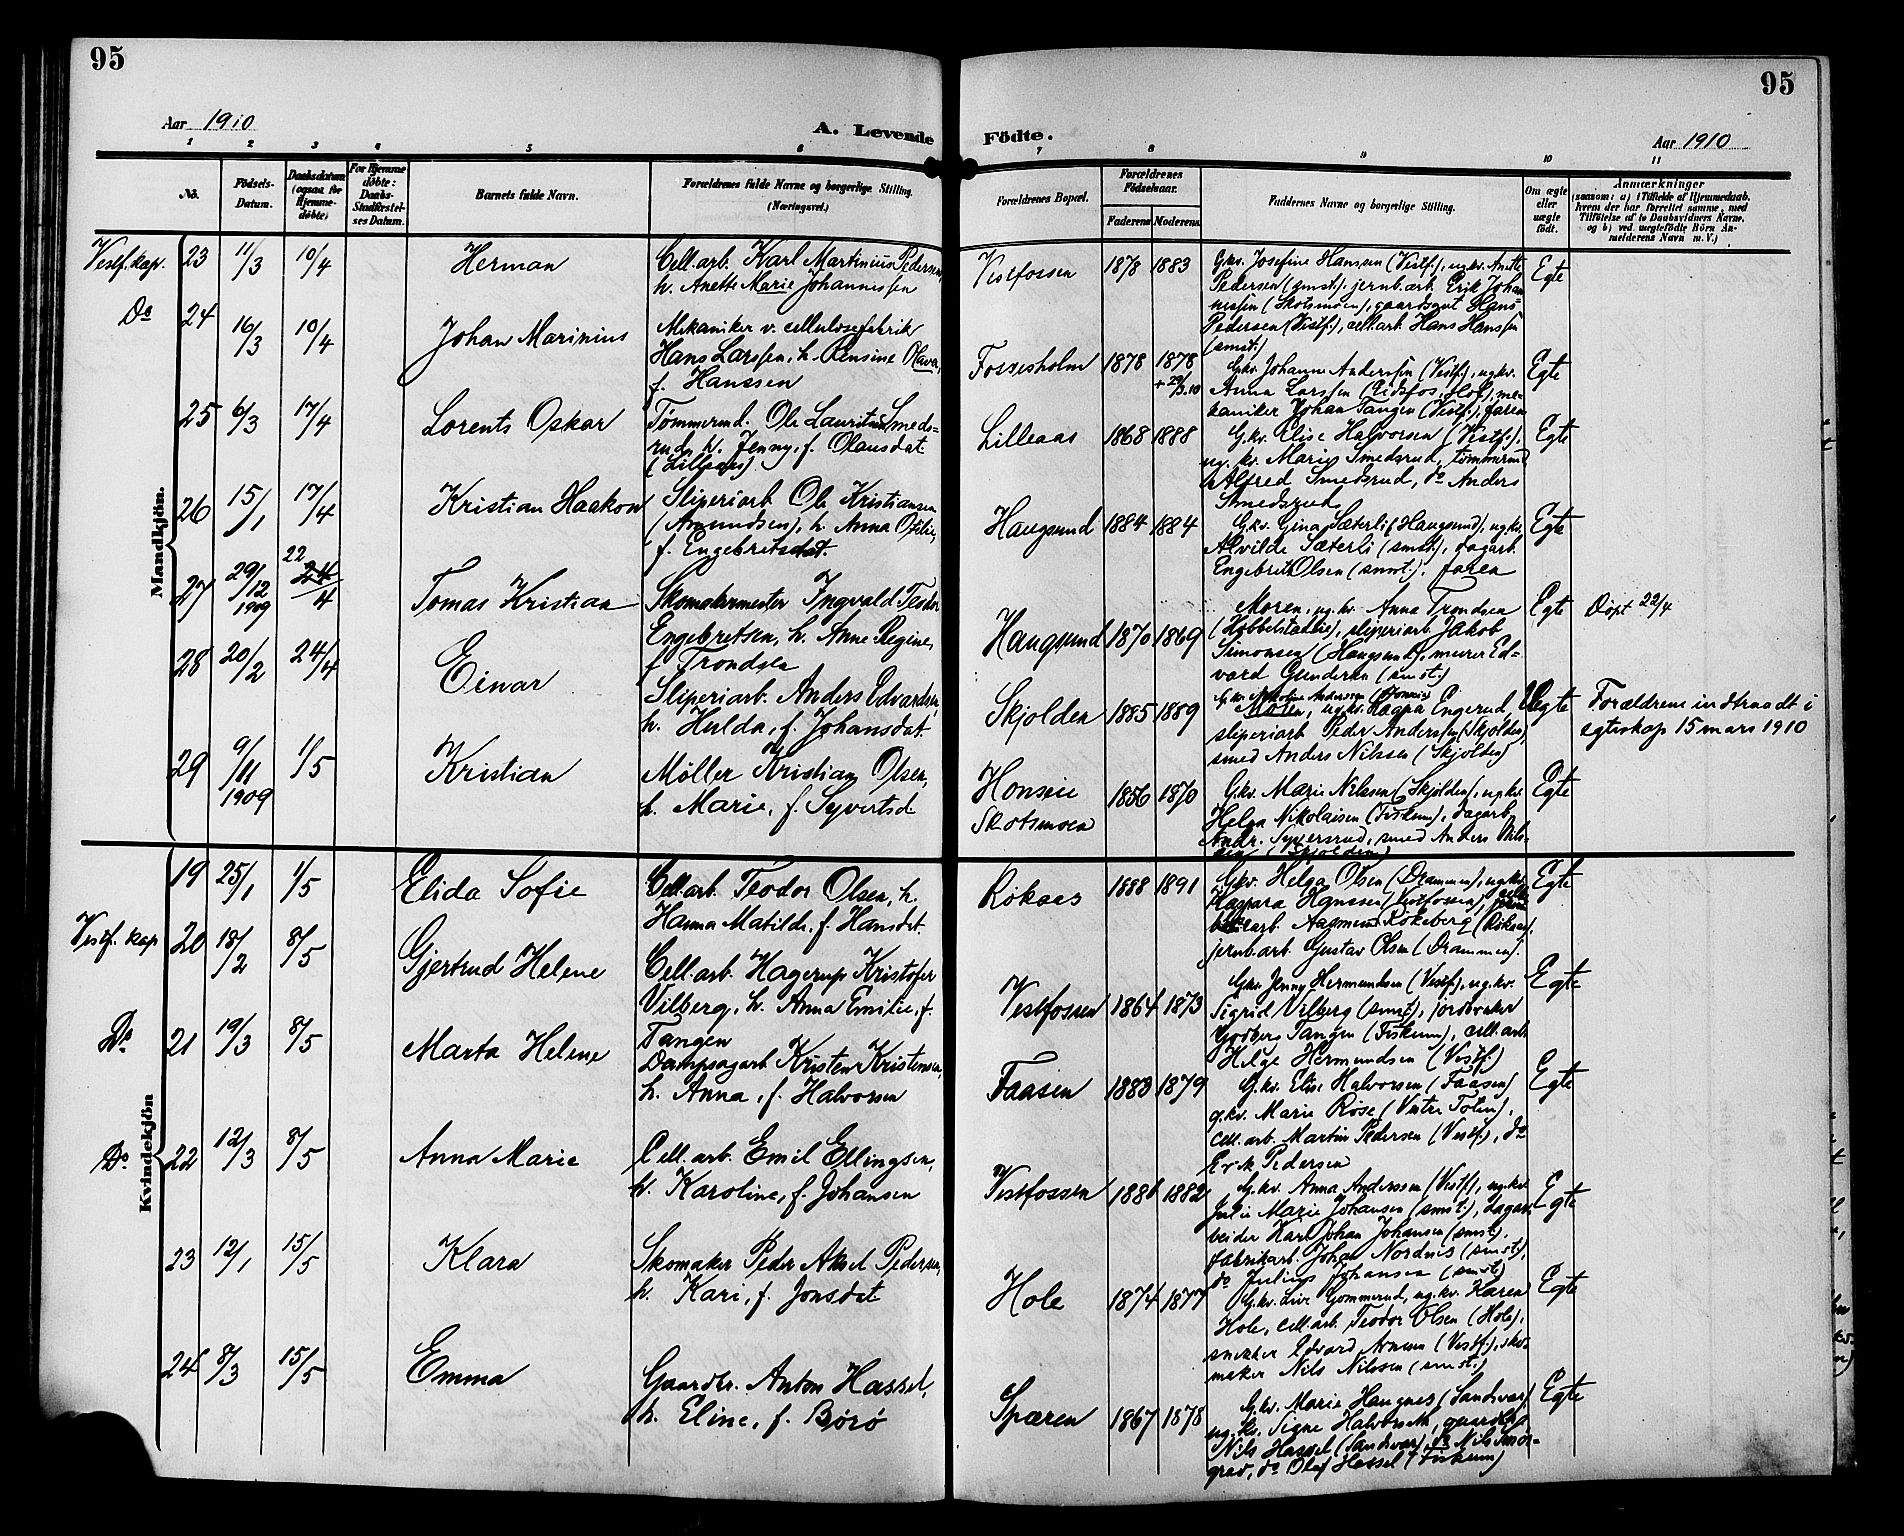 95
95
Aar 1910
A. Levende
Födte.
Aar 1910
1 2 3 4 5 6 7 8 9 10 11
No.
Födsels-
Datum.
Daabsdatum
(ogsaa for
Hjemme-
döbte)
For Hjemme
döbte:
Daabs-
Stadfæstel-
ses Datum.
Barnets fulde Navn.
Forældrenes fulde Navne og borgerlige Stilling.
(Næringsvei.)
Forældrenes Bopæl.
Forældrenes
Födselsaar.
Faderens Moderens
Faddernes Navne og borgerlige Stilling.
Om ægte
eller
uægte
födt.
Anmærkninger
(saasom: a) i Tilfælde af Hjemmedaab,
hvem der har forrettet samme, med
Tilföielse af to Daabsvidners Navne,
og b) ved uægtefödte Börn An-
melderens Navn m. V.)
Mandkjön.
Vestf. kap. 23 11/3 10/4 Herman
Cell.arb. Karl Martinius Pedersen,
h. Anette Marie Johannessen
Vestfossen 1878 1883
G.kv. Josefine Hansen (Vestf.), ug.kv. Anette
Pedersen (smst.), jernb.arb. Erik Johan
nessen (Skotsmoen), gaardgut Hans
Pedersen (Vestf.), cell.arb. Hans Hansen
(smst.)
Egte
Do 24 16/3 10/4 Johan Marinius
Mekaniker v. cellulosefabrik
Hans Larssen, h. Rensine Olava,
f. Hanssen
Fossesholm 1878 1878
+ 29/3.10
G.kv. Johanne Anderssen (Vestf.), ug.kv.
Anna Larssen (Eidsfos, Hof), me-
kaniker Johan Tangen (Vestf.), faren
Egte
25 6/3 17/4 Lorents Oskar
Tømmermd. Ole Lauritius Smeds-
rud, h. Jenny, f. Olausdat.
(Lilleaas)
Lilleaas 1868 1888
G.kv. Elise Halvorsen (Vestf.),
ug. kv. Marie Smedsrud, tømmermd
Alfred Smedsrud, do Anders
Smedsrud
Egte
26 15/1 17/4 Kristian Haakon
Sliperiarb Ole Kristiansen
(Amundsen), h. Anna Otilie,
f. Engebretsdat.
Haugsund 1884 1884
G.kv. Gina Sæterli (Haugsund), ug.kv.
Alvilde Sæterli (smst.), dagarb.
Engebreth Olsen (smst.), faren
Egte
27 29/12 1909 22 24/4 Tomas Kristian
Skomakermester Ingvald Teodor
Engebretsen, h. Anne Regine,
f. Trondsen
Haugsund 1870 1869
Moren, ug. kv. Anna Trondsen
(Hobbelstadeie), sliperiarb. Jakob
Simonsen (Haugsund), murer Ed-
vard Gundersen (smst.)
Egte Døpt 22/4
28 20/2 24/4 Einar
Sliperiarb. Anders Edvardsen,
h. Hulda, f. Johansdat.
Skjolden 1885 1889
Moren, ug.kv. Ragna Engerud,
sliperiarb Peder Anderssen (Skjolden),
smed Anders Nilssen (Skjolden)
Uegte Forældrene indtraadt i
egteskap 15 mars 1910
29 9/11 1909 1/5 Kristian
Møller Kristian Olsen,
h. Marie, f. Syvertsd.
Honseie
Skotsmoen 1856 1870
G.kv. Marie Nilssen (Skjolden), ug.kv.
Helga Nikolaisen (Fiskum), dagarb.
Andr. Syversrud, smed Anders Nils-
sen (Skjolden)
Egte
Kvindekjön
19 25/1 1/5 Elida Sofie
Cell.arb. Teodor Olsen, h.
Hanna Matilde, f. Hansdat.
Røkaas 1888 1891
G.kv. Helga Olsen (Drammen), ug.kv.
Kaspara Hanssen (Vestfossen),
arb Aagmund Røkeberg (Røkaas),
jernb.arb. Gustav Olsen (Drammen).
Egte
Vestf. kap 20 18/2 8/5 Gjertrud Helene
Cell.arb. Hagerup Kristofer
Vilberg, h. Anna Emilie, f.
Tangen
Vestfossen 1864 1873
G.kv. Jenny Hermundsen (Vestf.), ug.kv.
Sigrid Vilberg (smst.), jordbruker
Godberg Tangen (Fiskum), cell.arb.
Helge Hermundsen (Vestf.)
Egte
Do 21 19/3 8/5 Marta Helene
Dampsagarb Kristen Kristensen,
h. Anna, f. Halvorsen
Faasen 1883 1879
G.kv. Elise Halvorsen (Faasen)
g.kv. Marie Røse (Vestre Tolen),
cell.arb. Martin Pedersen (Vestf.), do
Erik Pedersen
Egte
Do 22 12/3 8/5 Anna Marie
Cell.arb Emil Ellingsen,
h. Karoline, f. Johansen
Vestfossen 1881 1882
G.kv. Anna Anderssen (Vestf), ug.kv.
Julie Marie Johansen (smst.), dagar-
beider Karl Johan Johansen (smst.),
fabrikarb. Johan Nordnis (smst.),
do Julius Johansen (smst.)
Egte
23 12/1 15/5 Klara
Skomaker Peder Aksel Pedersen,
h. Kari, f. Jonsdat
Hole 1874 1877
G.kv. Live Gommerud, ug.kv. Karen
Hole, cell.arb. Teodor Olsen (Hole),
snekker Edvard Arnesen (Vestf.), sko-
maker Nils Nilssen (smst.)
Egte
24 8/3 15/5 Emma
Gaardbr. Anton Hassel,
h. Eline, f. Børø
Spæren 1867 1878
G.kv. Marie Haugnes (Sandsvær)
ug.kv. Signe Halvorsen, gaardbr.
Nils Hassel (Sandsvær), do Nils Smør-
grav, do Olaf Hassel (Fiskum)
Egte